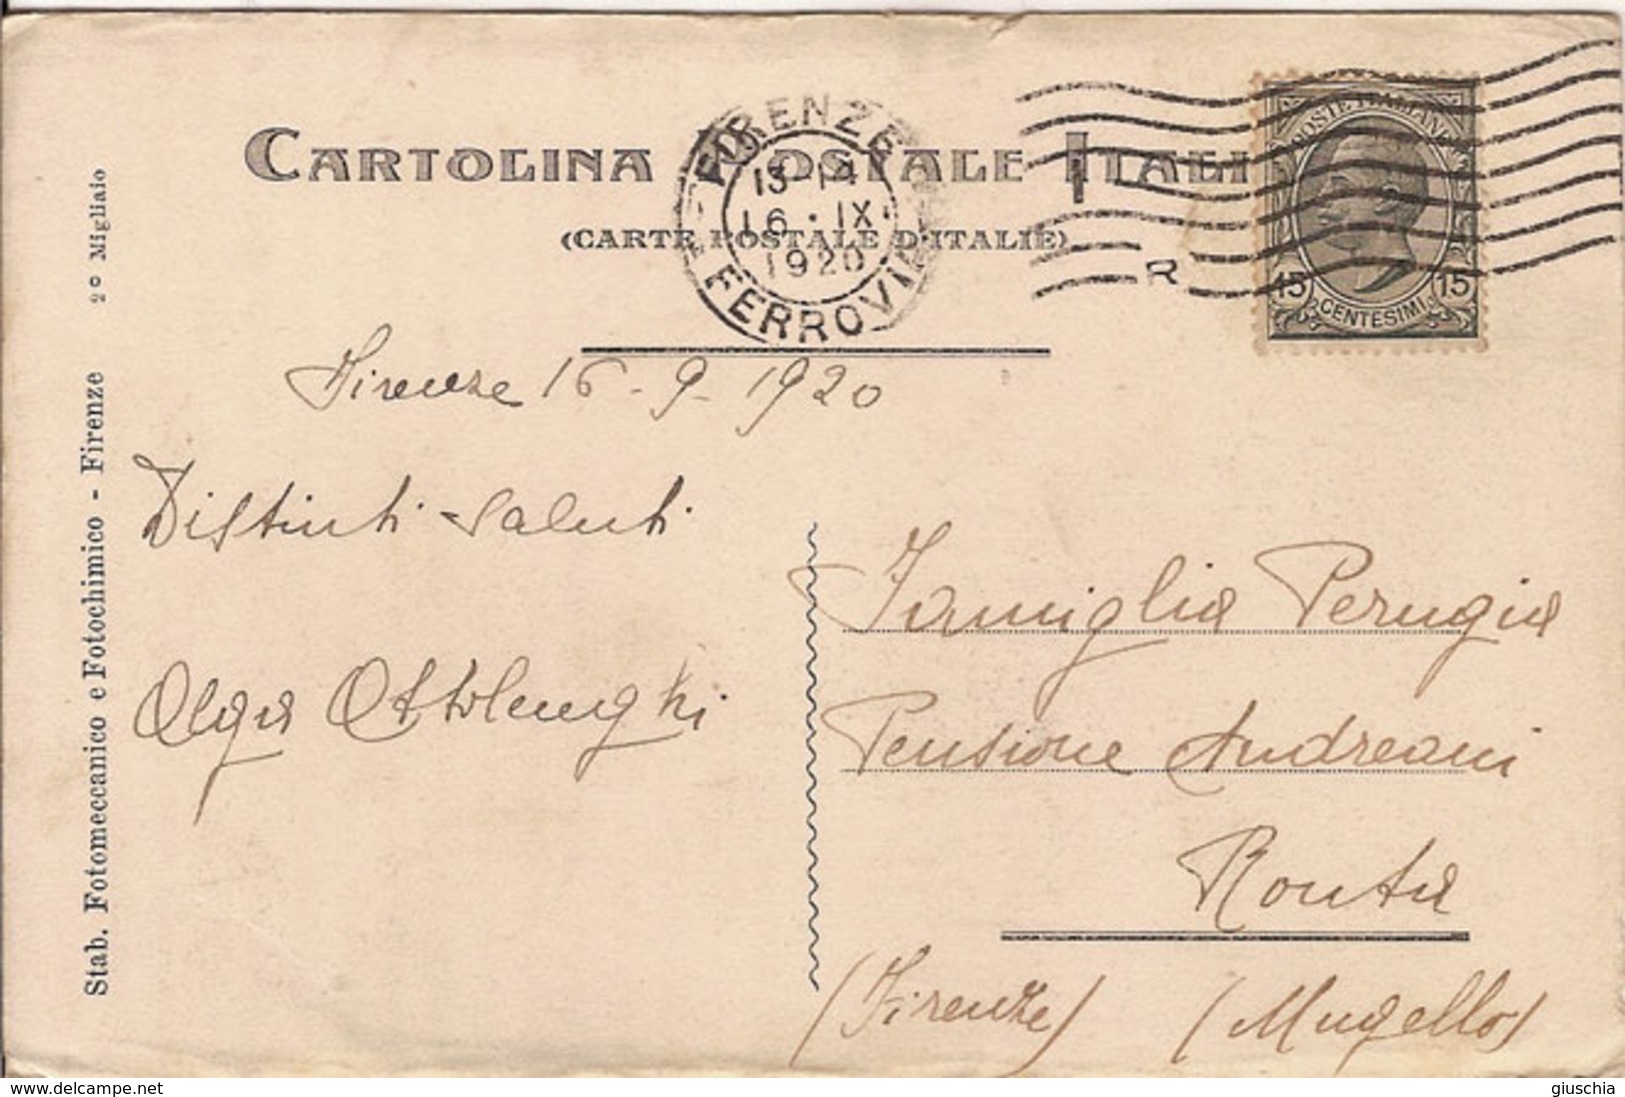 CARTOLINA POSTALE ITALI
(CARTE POSTALE D'ITALIE)
FIRENZE
13-14
16·IX·
1920
FERROVIA
R
POSTE ITALIANE
15 15
CENTESIMI
Firenze 16-9-1920
Distinti saluti
Olga Ottolenghi
Famiglia Perugia
Pensione Andreani
Ronta
(Firenze) (Mugello)
Stab. Fotomeccanico e Fotochimico - Firenze 2º Migliaio
delcampe.net
giuschia